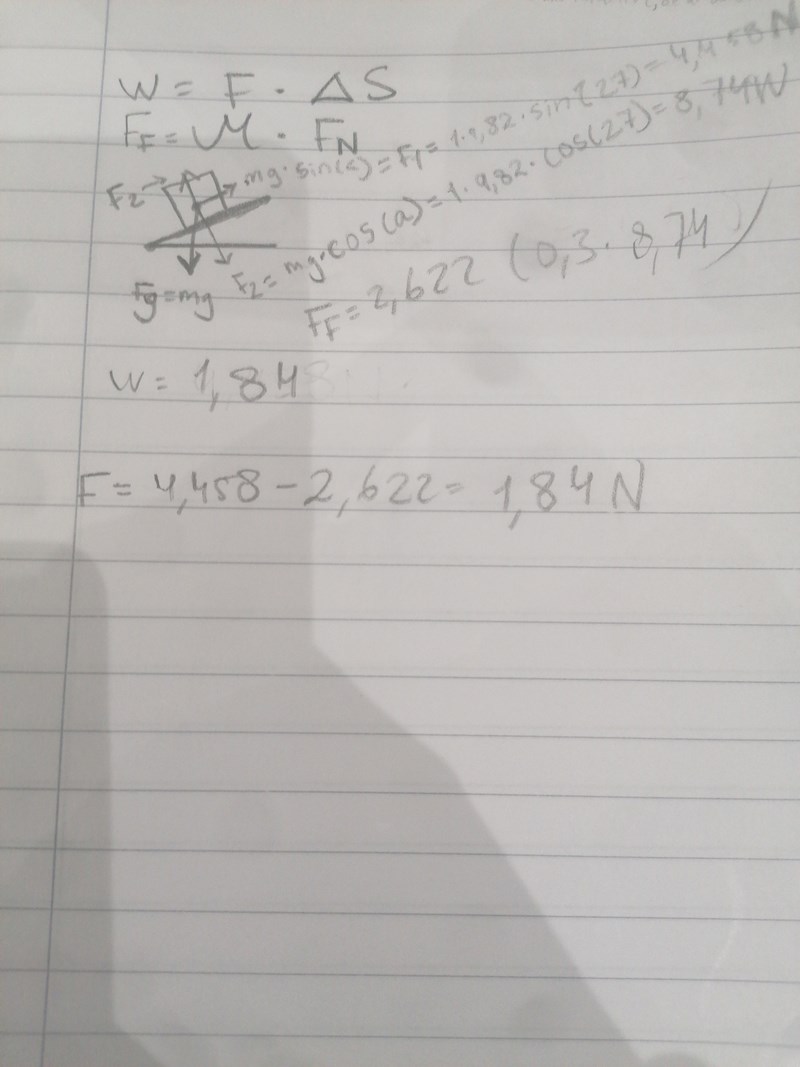 W = F · ΔS
F_F = μ · F_N
F₂ mg·sin(α) = F₁ = 1·9,82·sin(27) = 4,458N
F₂ = mg·cos(a) = 1·9,82·cos(27) = 8,74N
Fg = mg
F_F = 2,622 (0,3·8,74)
W = 1,84
F = 4,458 - 2,622 = 1,84 N